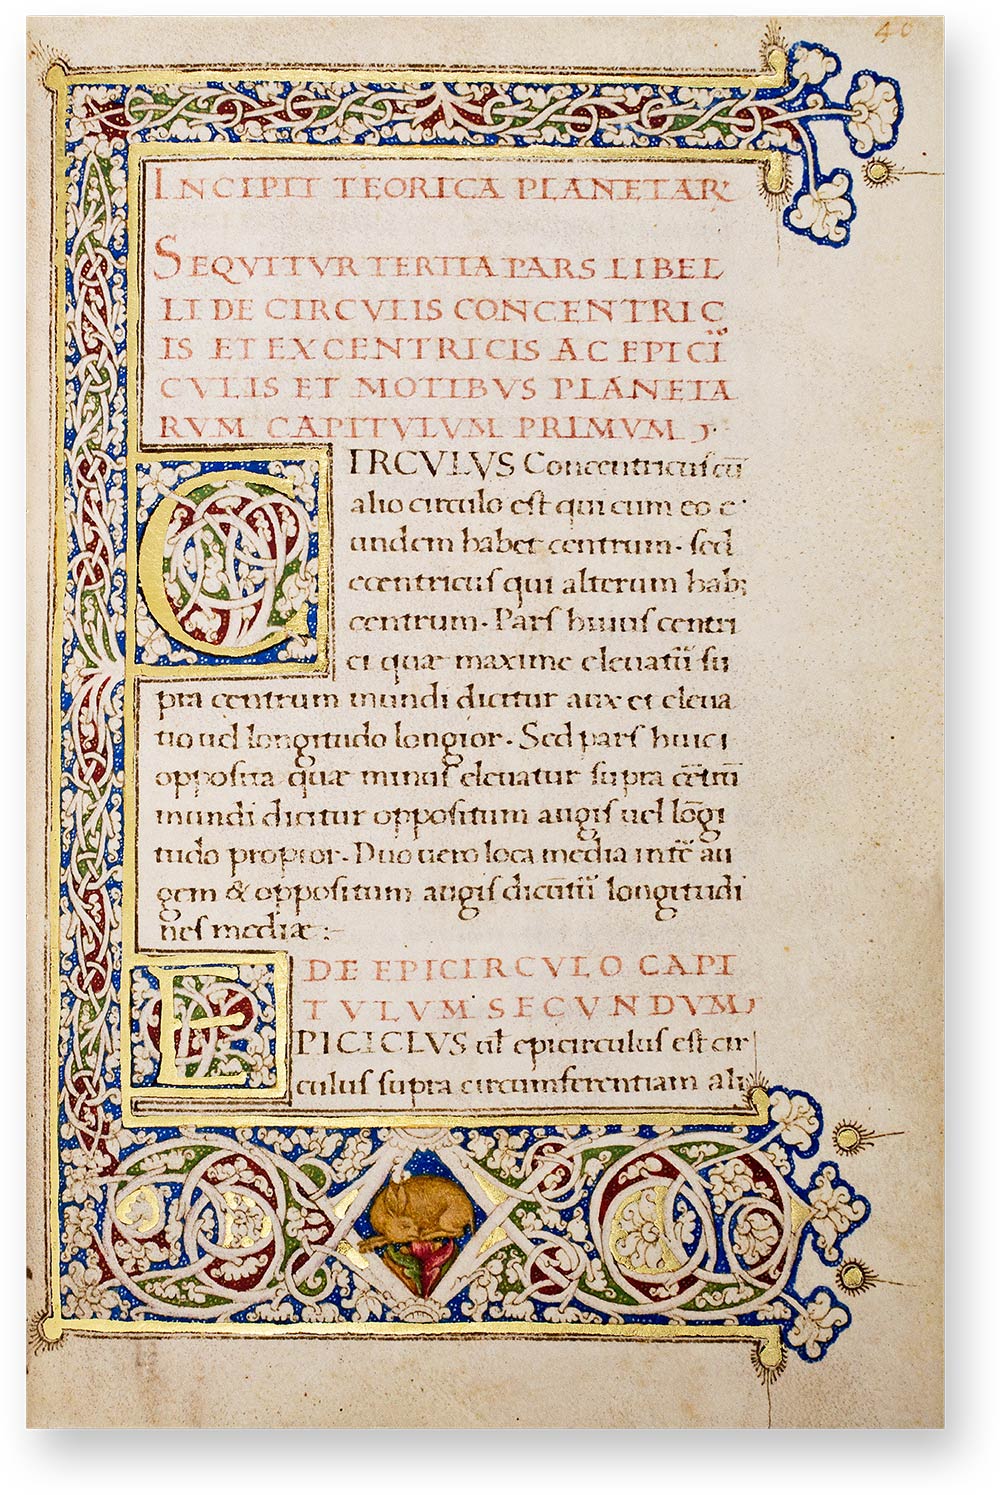 40
INCIPIT TEORICA PLANETAR̃
SEQVITVR TERTIA PARS LIBEL
LI DE CIRCVLIS CONCENTRIC
IS ET EXCENTRICIS AC EPICI
CVLIS ET MOTIBVS PLANETA
RVM CAPITVLVM PRIMVM
CIRCVLVS Concentricus cū
alio circulo est qui cum eo e
undem habet centrum. sed
ecentricus qui alterum hab;
centrum. Pars huius centri
ci quæ maxime eleuatũ su
pra centrum mundi dicitur aux et eleua
tio uel longitudo longior. Sed pars huici
opposita quæ minus eleuatur supra cẽtrũ
mundi dicitur oppositum augis uel lõgi
tudo propior. Duo uero loca media intẽ au
gem & oppositum augis dicũtũ longitudi
nes mediæ :-
DE EPICIRCVLO CAPI
TVLVM SECVNDVM
EPICICLVS ul̃ epicirculus est cir
culus supra circumferentiam ali